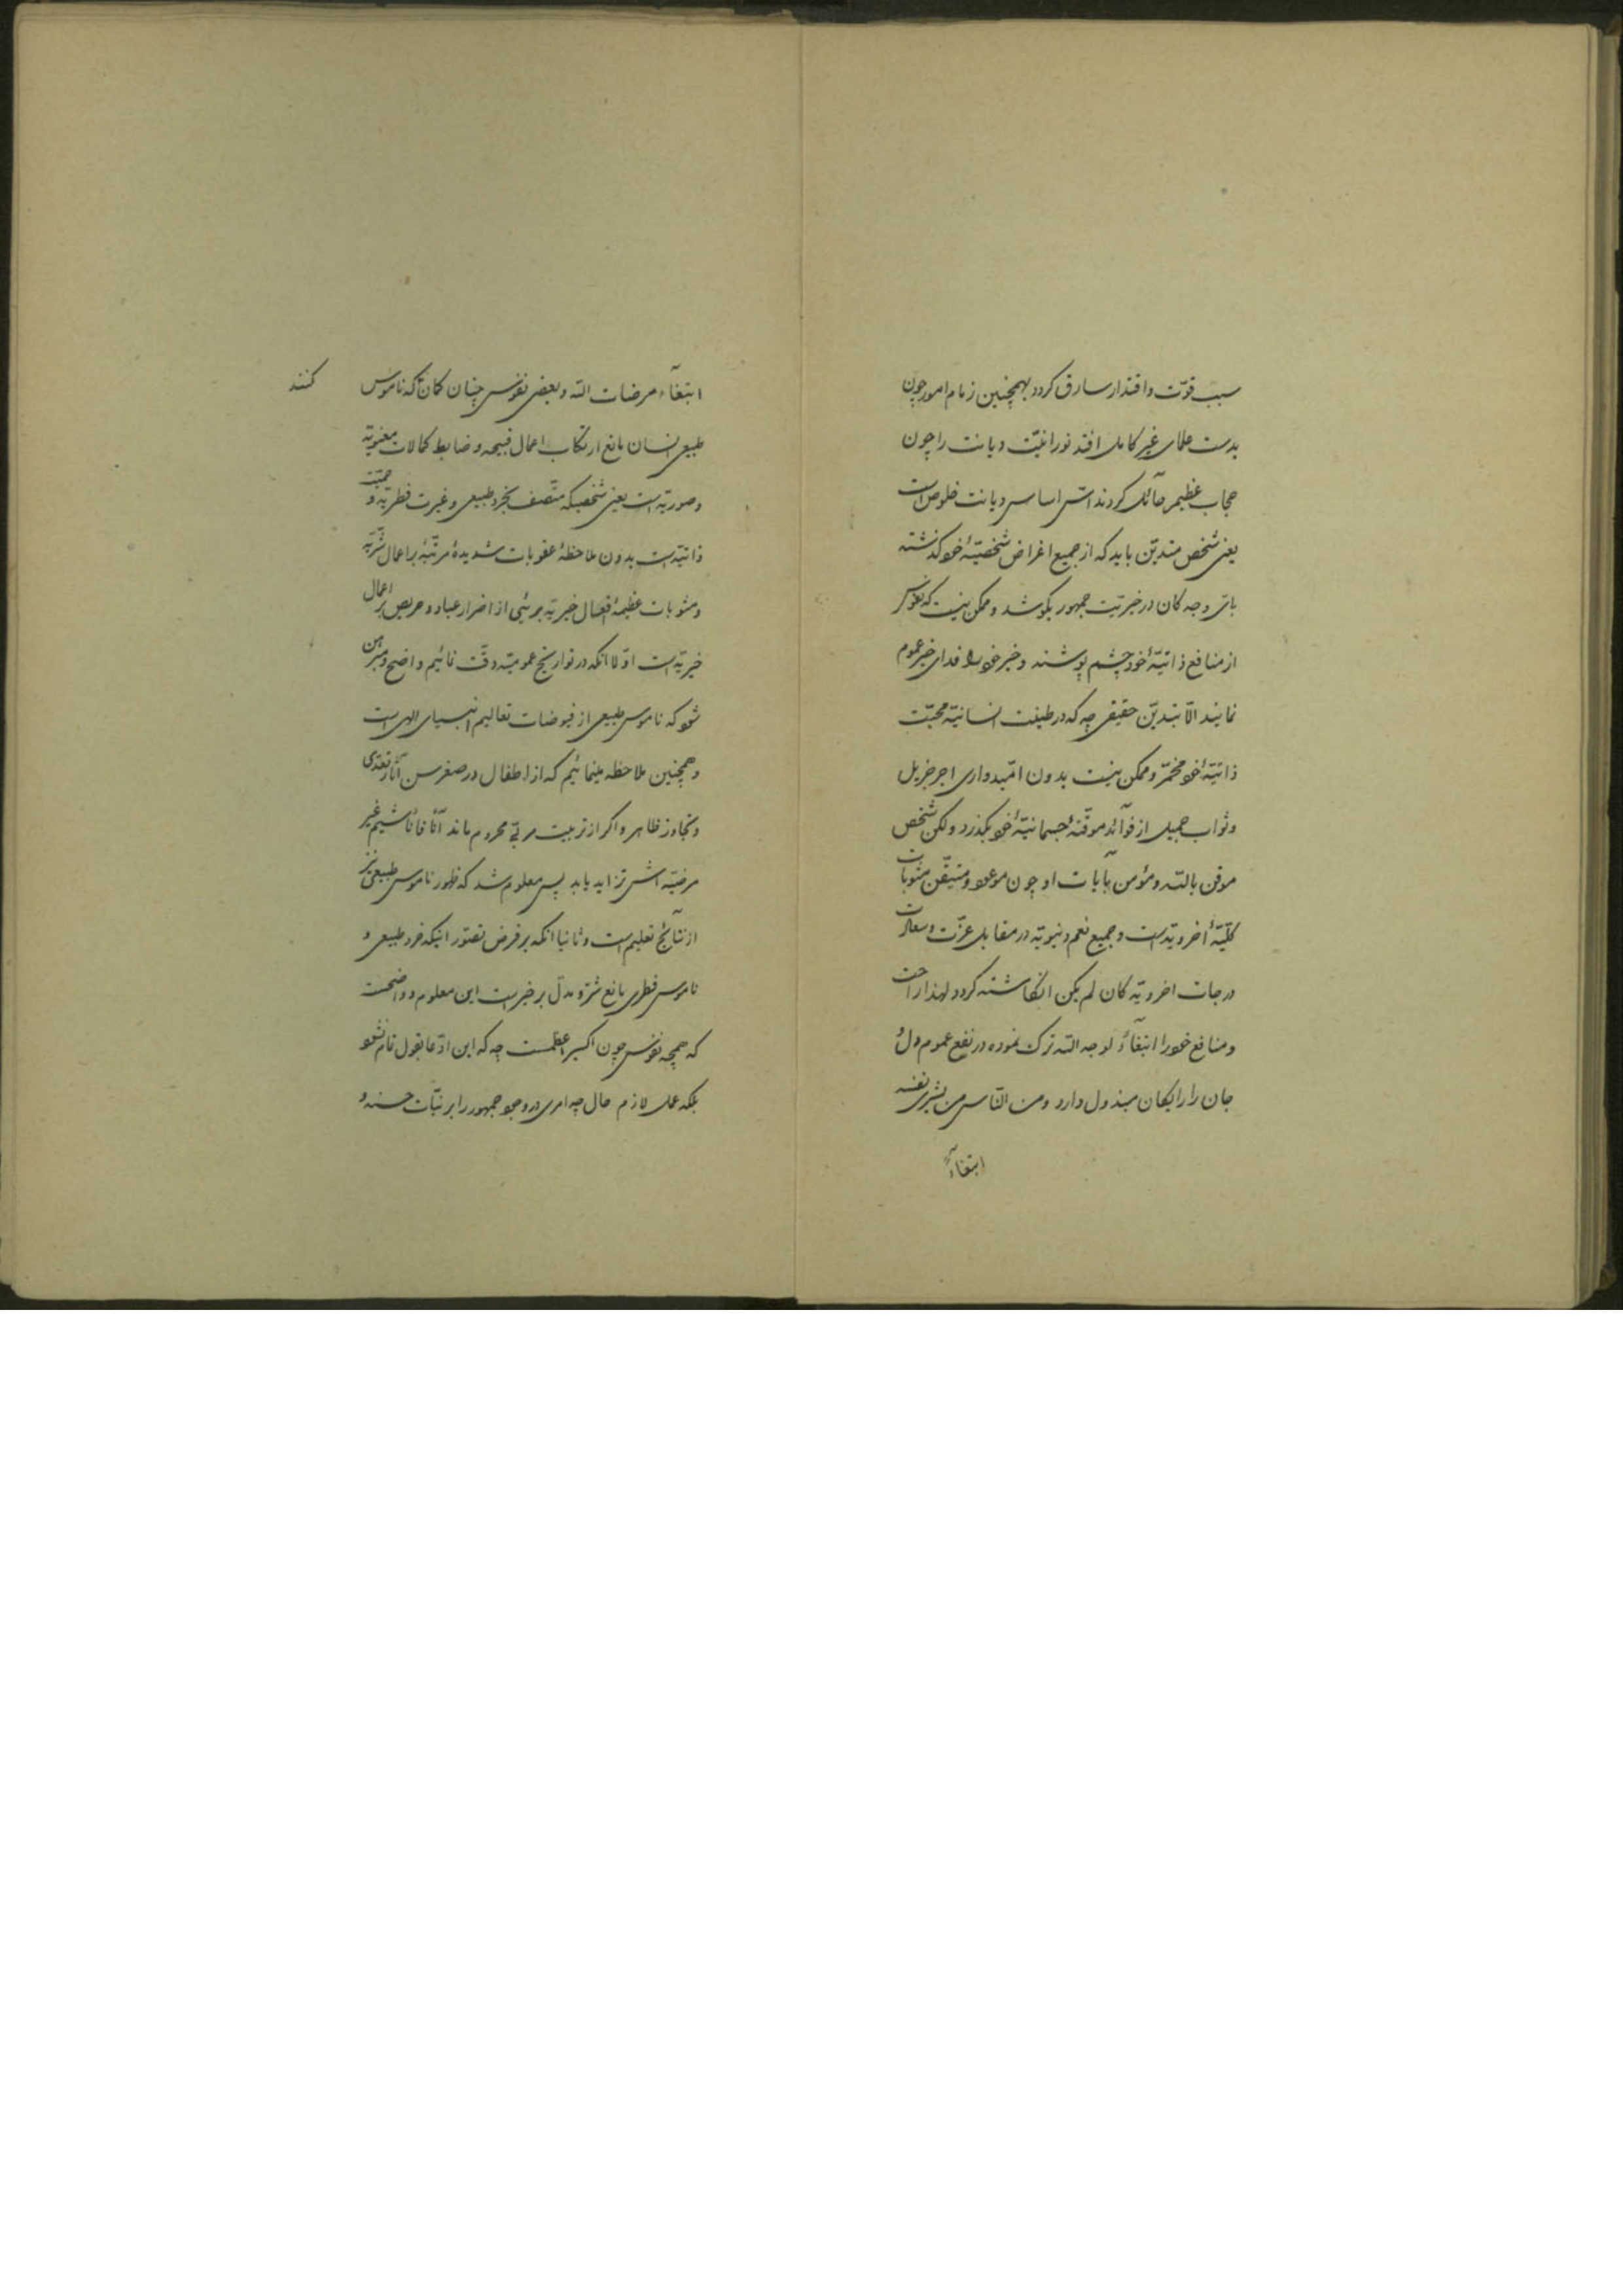 سبب قوّت و اقتدار سارق کردد بهمچنین زمام امور چون
بدست علمای غیر کامل افتد نورانیّت دیانت را چون
حجاب عظیم حآئل کردند اسّ اساس دیانت خلوص است
یعنی شخص متدیّن باید که از جمیع اغراض شخصیّهٔ خود کذشته
بایّ وجه کان در خیریّت جمهور بکوشد و ممکن نیست که نفوس
از منافع ذاتیّهٔ خود چشم پوشند و خیر خود را فدای خیر عموم
نمایند الّا بتدیّن حقیقی چه که در طینت انسانیّه محبّت
ذاتیّهٔ خود مخمّر و ممکن نیست بدون امّیدواری اجر جزیل
و ثواب جمیل از فوآئد موقّتهٔ جسمانیّهٔ خود بکذرد ولکن شخص
موقن باللّه و مؤمن بآیات او چون موعود و متیقّن مثوبات
کلّیّهٔ اخرویّه است و جمیع نعم دنیویّه در مقابل عزّت و سعادت
درجات اخرویّه کان لم یکن انکاشته کردد لهذا راحت
و منافع خود را ابتغآءً لوجه اللّه ترک نموده در نفع عموم دل و
جان را رایکان مبذول دارد و من النّاس من یشری نفسه
ابتغآءً
ابتغآء مرضات اللّه و بعضی نفوس چنان کمان کنند که ناموس
طبیعی انسان مانع ارتکاب اعمال قبیحه و ضابط کمالات معنویّه
و صوریّه است یعنی شخصیکه متّصف بخرد طبیعی و غیرت فطریّه و حمیّت
ذاتیّه است بدون ملاحظهٔ عقوبات شدیدهٔ مرتّبهٔ بر اعمال شرّیّه
و مثوبات عظیمهٔ افعال خیریّه بریئی از اضرار عباد و حریص بر اعمال
خیریّه است اوّلا انکه در تواریخ عمومیّه دقّت نمائیم واضح و مبرهن
شود که ناموس طبیعی از فیوضات تعالیم انبیای الهی است
و همچنین ملاحظه مینمائیم که از اطفال در صغر سن آثار تعدّی
و تجاوز ظاهر و اکر از تربیت مربّی محروم ماند آنًا فآنًا شیم غیر
مرضیّه اش تزاید یابد پس معلوم شد که ظهور ناموس طبیعی نیز
از نتآئج تعلیم است و ثانیا انکه بر فرض تصوّر اینکه خرد طبیعی و
ناموس فطری مانع شرّ و مدلّ بر خیر است این معلوم و واضحست
که همچه نفوس چون اکسیر اعظمست چه که این ادّعا بقول تمام نشود
بلکه عمل لازم حال چه امری در وجود جمهور را بر نیّات حسنه و